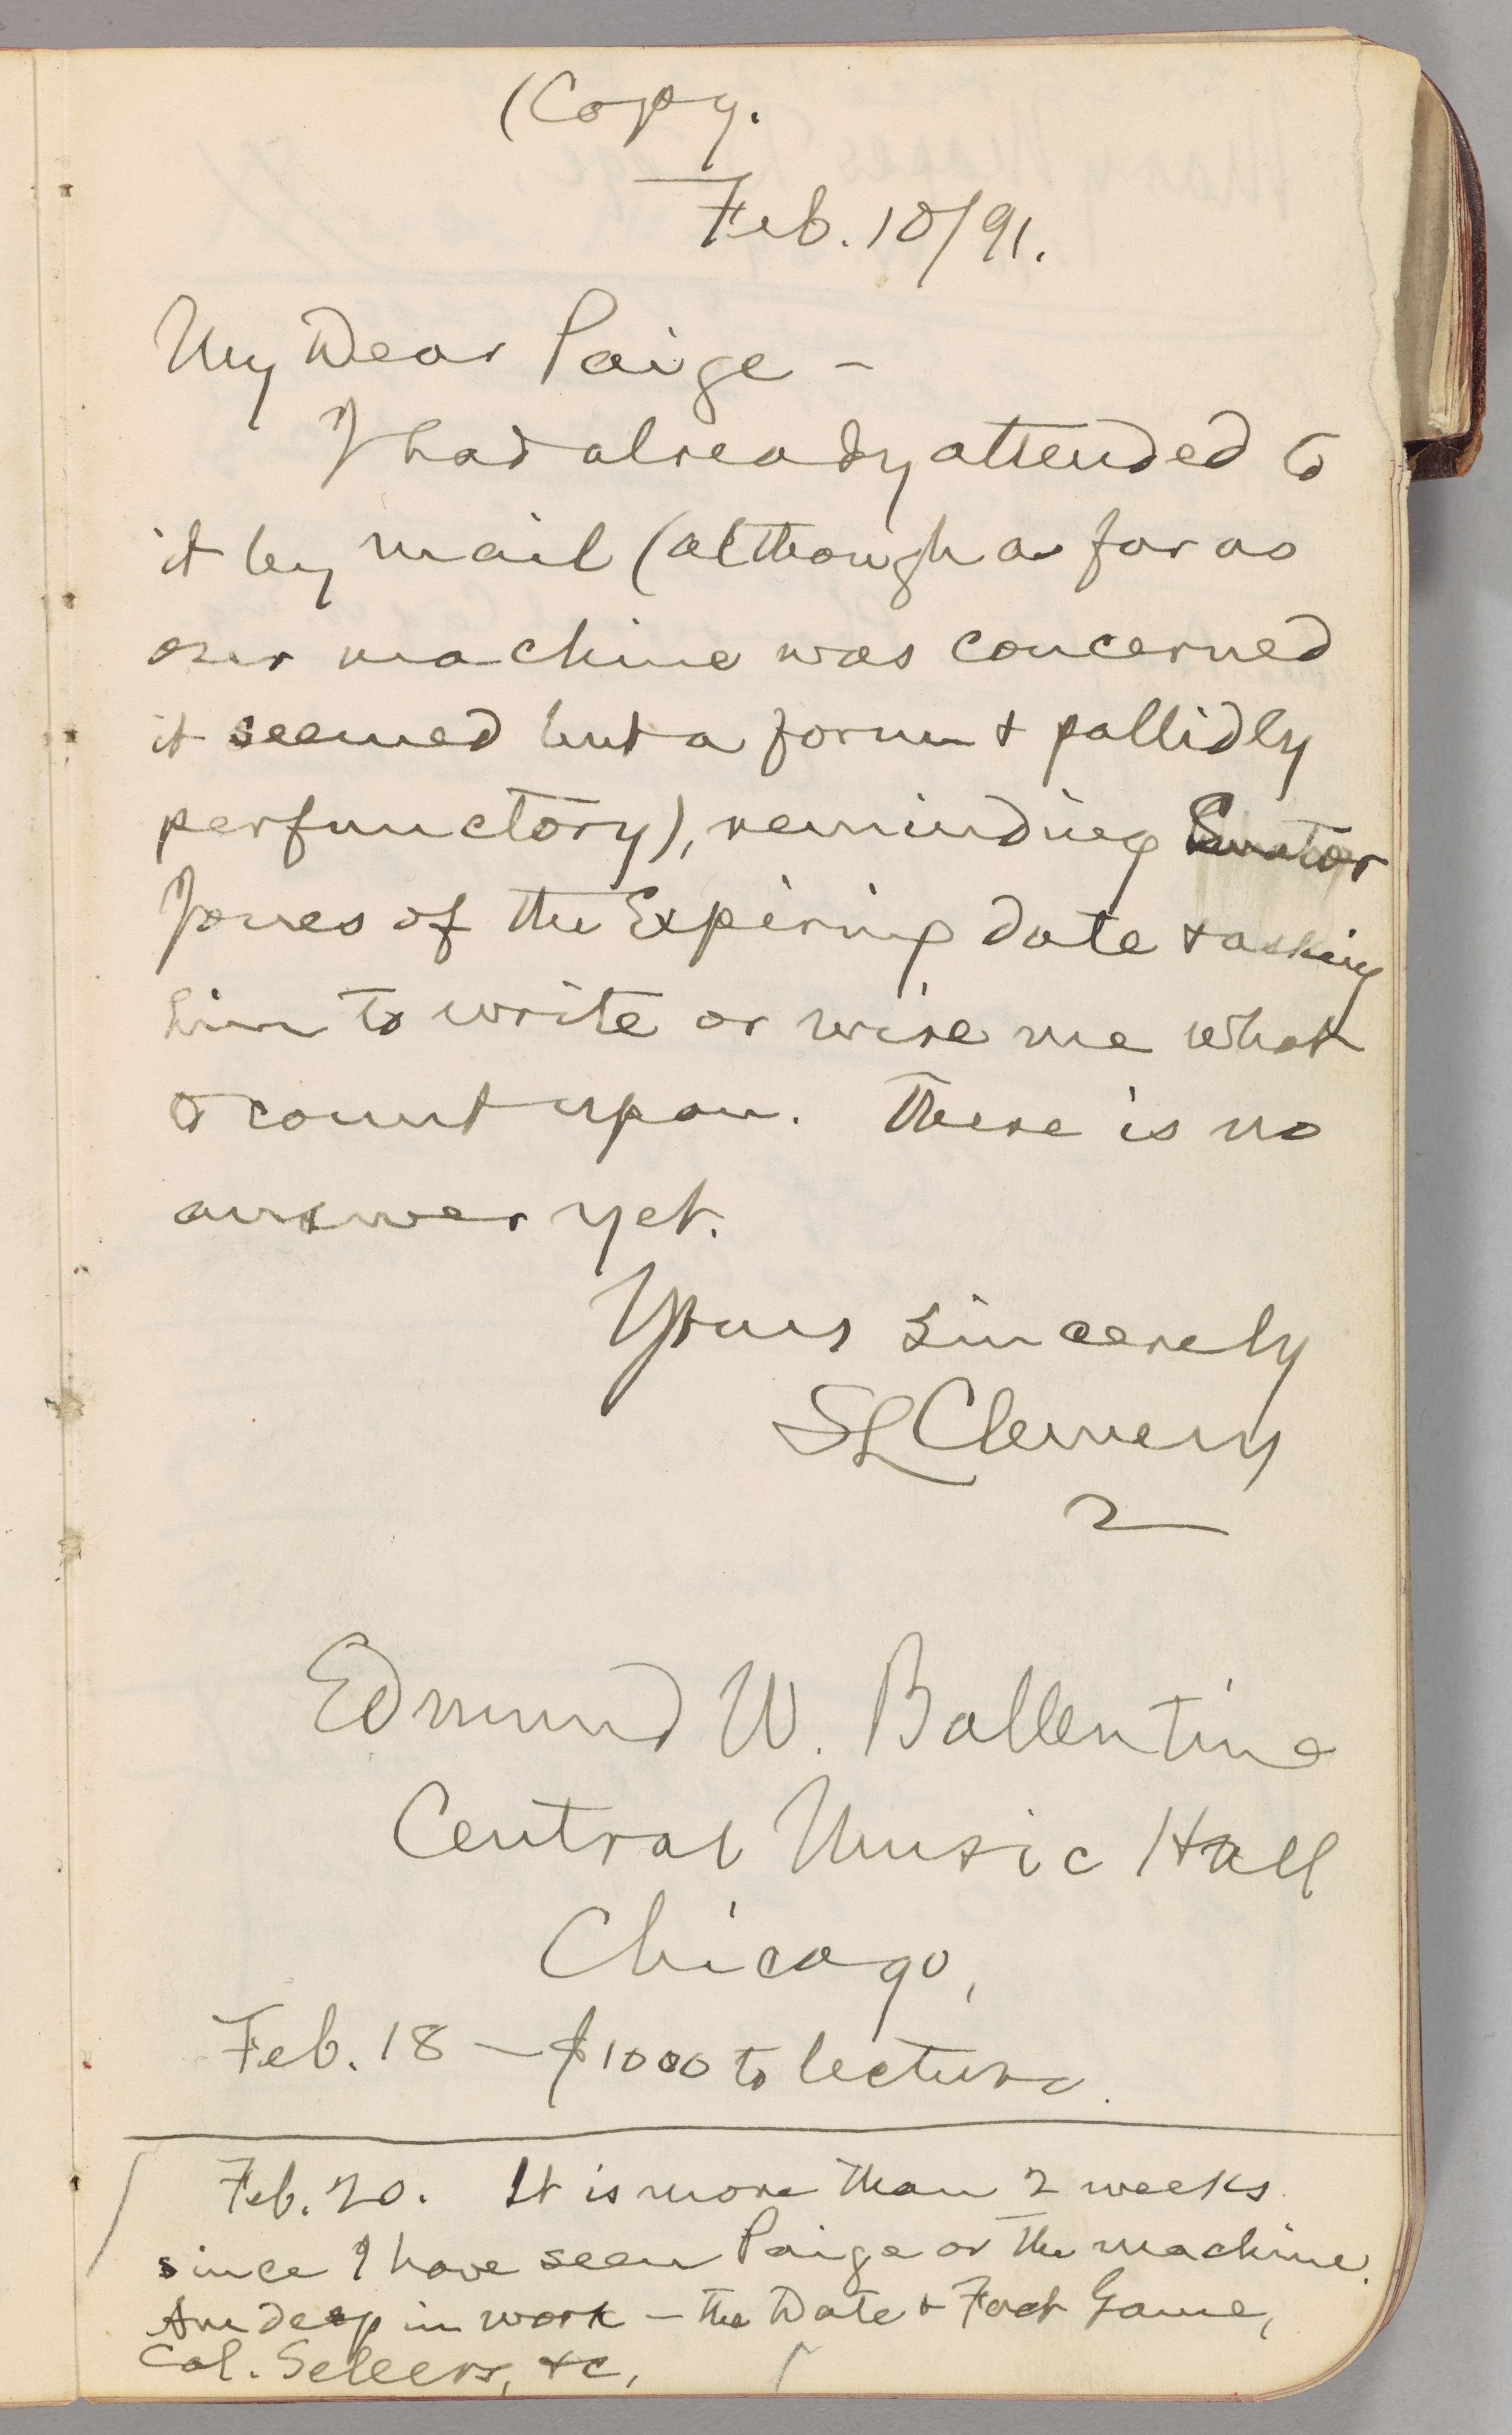 (Copy.
Feb. 10/91.
My Dear Paige –
I had already attended to
it by mail (although as far as
our machine was concerned
it seemed but a form & pallidly
perfunctory), reminding Senator
Jones of the Expiring date & asking
him to write or wire me what
to count upon. There is no
answer yet.
Yours sincerely
SL Clemens
Edmund W. Ballentine
Central Music Hall
Chicago,
Feb. 18 – $1000 to lecture.
Feb. 20. It is more than 2 weeks
since I have seen Paige or the machine.
Am deep in work – the Date & Fact Game,
Col. Sellers, &c.